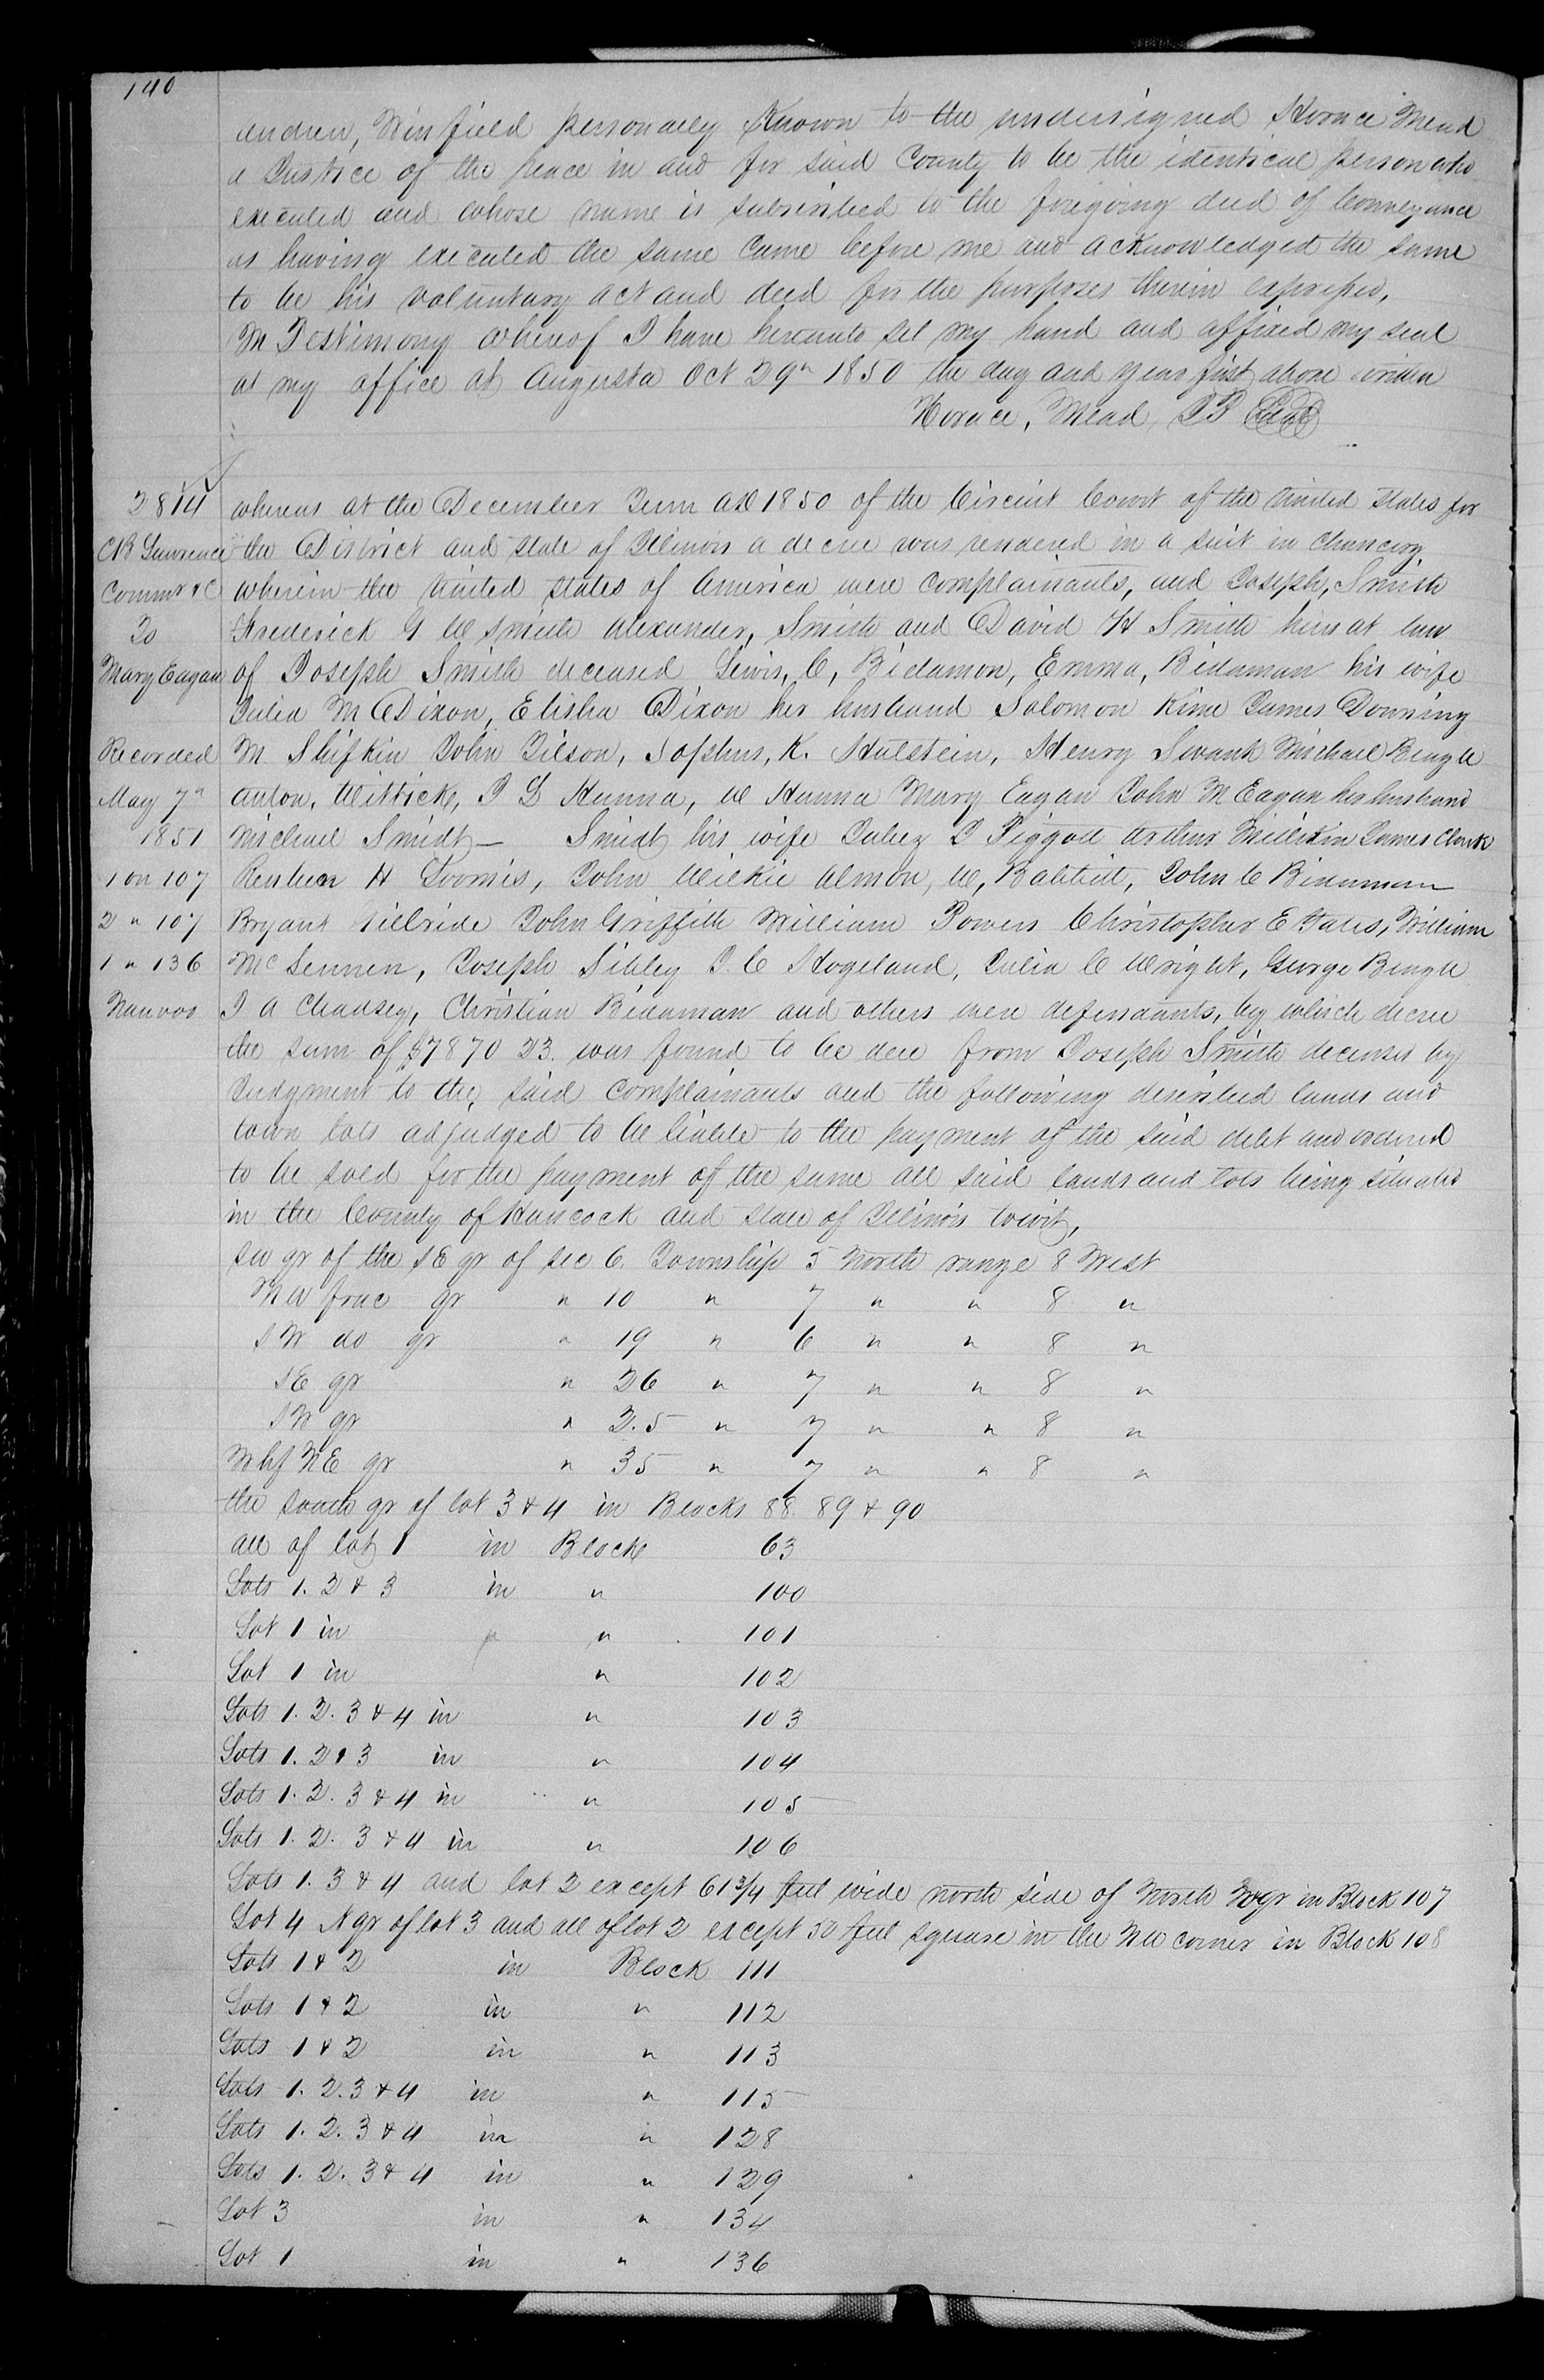 140
andrew, Winfield personally Known to the undersigned Horace Mead
a Justice of the peace in and for said County to be the identical person who
executed and whose name is subscribed to the foregoing deed of Conveyance
as having executed the same Came before me and acknowledged the same
to be his voluntary act and deed for the purposes therein expressed,
In Testimony whereof I have hereunto set my hand and affixed my seal
at my office at Augusta Oct 29th 1850 the day and year first above written
Horace, Mead, JP Seal
2814
CB Lawrence
Commr &C
To
Mary Eagan
Recorded
May 7th
1851
1 on 107
2 " 107
1 " 136
Nauvoo
whereas at the December Term AD 1850 of the Circuit Court of the United States for
the District and state of Illinois a decree was rendered in a suit in chancery
wherein the United States of America were complainants, and Joseph, Smith
Frederick G W Smith Alexander, Smith and David H Smith heirs at law
of Joseph Smith deceased Lewis, C, Bidamon, Emma, Bidaman his wife
Julia M Dixon, Elisha Dixon her husband Solomon Kime James Downing
M Shifkin John Tilson, Sophus, K. Hulstein, Henry Swank Michael Beugle
Anton, Wittick, J L Hanna, W Hanna Mary Eagan John M Eagan her husband
Michael Smidt — Smidt his wife Jabez J Piggott Arthur Millikin James Clark
Reuben H Loomis, John Wilkie Almon, W, Babbitt, John C Bidamon
Bryant Gillride John Griffith William Powers Christopher E Yates, William
McLennen, Joseph Sibley J. C Hogeland, Julia C Wright, George Beugle
J A Chadsey, Christian Bidaman and others were defendants, by which decree
the sum of $7870 23. was found to be due from Joseph Smith deceased by
Judgment to the said complainants and the following described lands and
town lots adjudged to be liable to the payment of the said debt and ordered
to be sold for the payment of the same all said lands and lots being situated
in the County of Hancock and state of Illinois towit,
SW qr of the SE qr of sec 6. Township 5 North range 8 West
NW frac qr " 10 " 7 " " 8 "
SW do qr " 19 " 6 " " 8 "
SE qr " 26 " 7 " " 8 "
SW qr " 25 " 7 " " 8 "
W hf NE qr " 35 " 7 " " 8 "
the south qr of lot 3 & 4 in Blocks 88. 89 & 90
all of lot 1 in Block 63
Lots 1. 2 & 3 in " 100
Lot 1 in " " 101
Lot 1 in " 102
Lots 1. 2. 3 & 4 in " 103
Lots 1. 2 & 3 in " 104
Lots 1. 2. 3 & 4 in " 105
Lots 1. 2. 3 & 4 in " 106
Lots 1. 3 & 4 and lot 2 except 61 3/4 feet wide north side of North qr in Block 107
Lot 4 N qr of lot 3 and all of lot 2 except 50 feet square in the NW corner in Block 108
Lots 1 & 2 in Block 111
Lots 1 & 2 in " 112
Lots 1 & 2 in " 113
Lots 1. 2. 3 & 4 in " 115
Lots 1. 2. 3 & 4 in " 128
Lots 1. 2. 3 & 4 in " 129
Lot 3 in " 134
Lot 1 in " 136